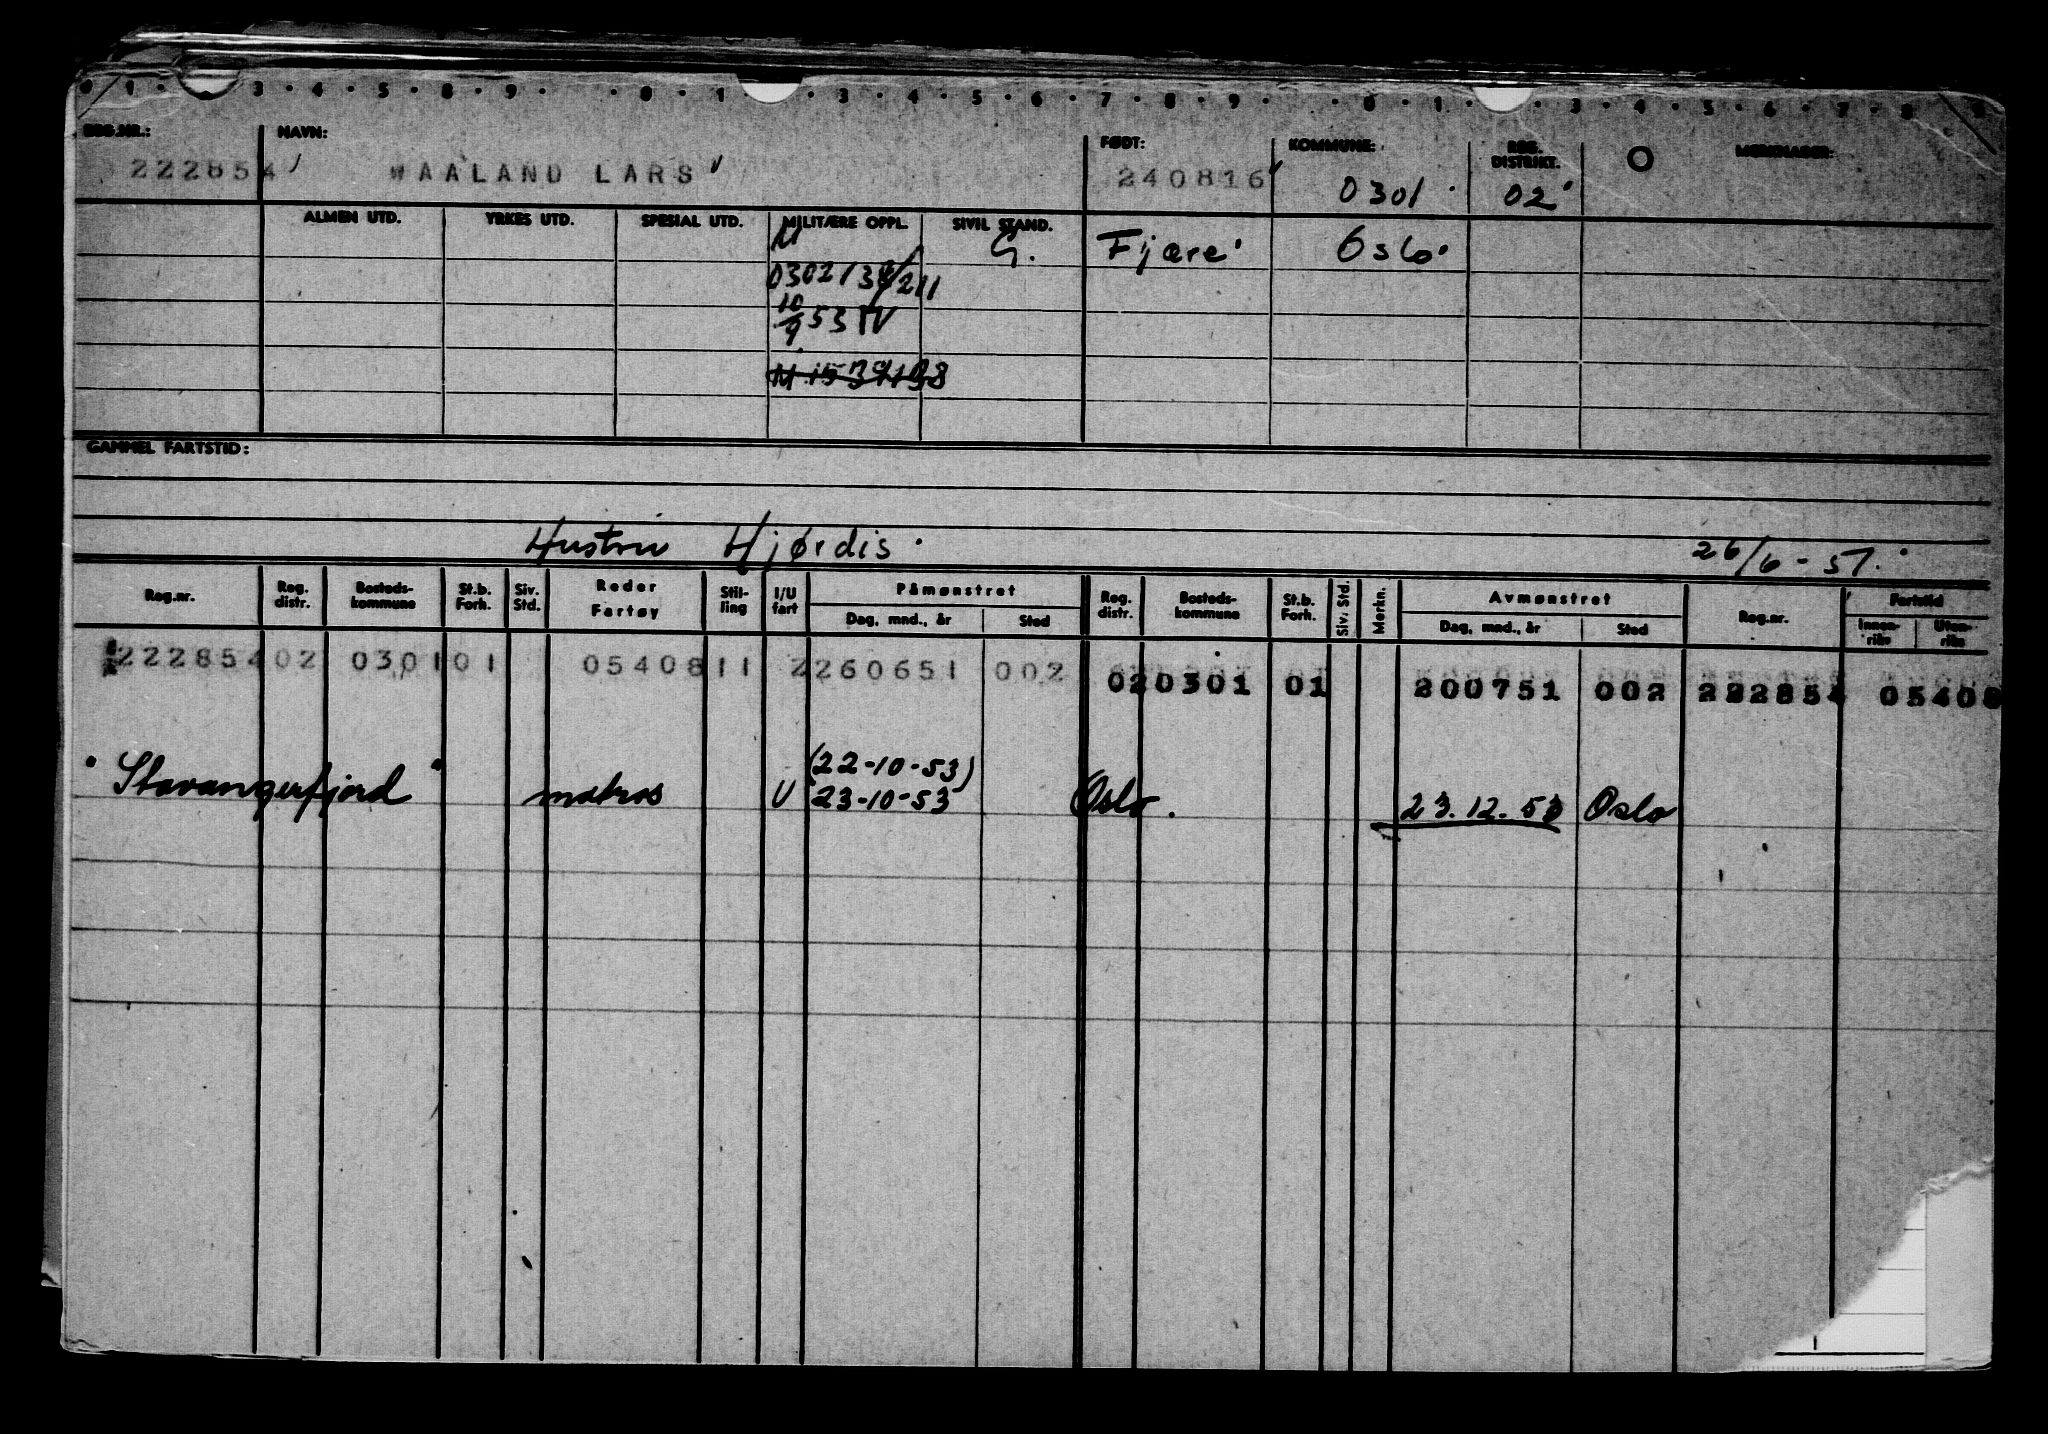 REG.NR.: NAVN: FØDT: KOMMUNE: REG. DISTRIKT. O MERKNADER:
222854 WAALAND LARS 240816 0301 02
ALMEN UTD. YRKES UTD. SPESIAL UTD. MILITÆRE OPPL. SIVIL STAND.
M G. Fjære Oslo
10/9 53 IV
GAMMEL FARTSTID:
Hustru Hjørdis. 26/6-51.
Reg.nr. Reg. distr. Bosteds-kommune St.b. Forh. Siv. Std. Reder Fartøy Stil-ling I/U fart Påmønstret Dag, mnd., år Sted Reg. distr. Bosteds-kommune St.b. Forh. Siv. Std. Merkn. Avmønstret Dag, mnd., år Sted Reg.nr. Fartstid Innen-riks Uten-riks
222854 02 0301 01 05408 11 2 260651 002 02 0301 01 200751 002 222854 05408
(22-10-53)
"Stavangerfjord" matros U 23-10-53 Oslo. 23.12.53 Oslo